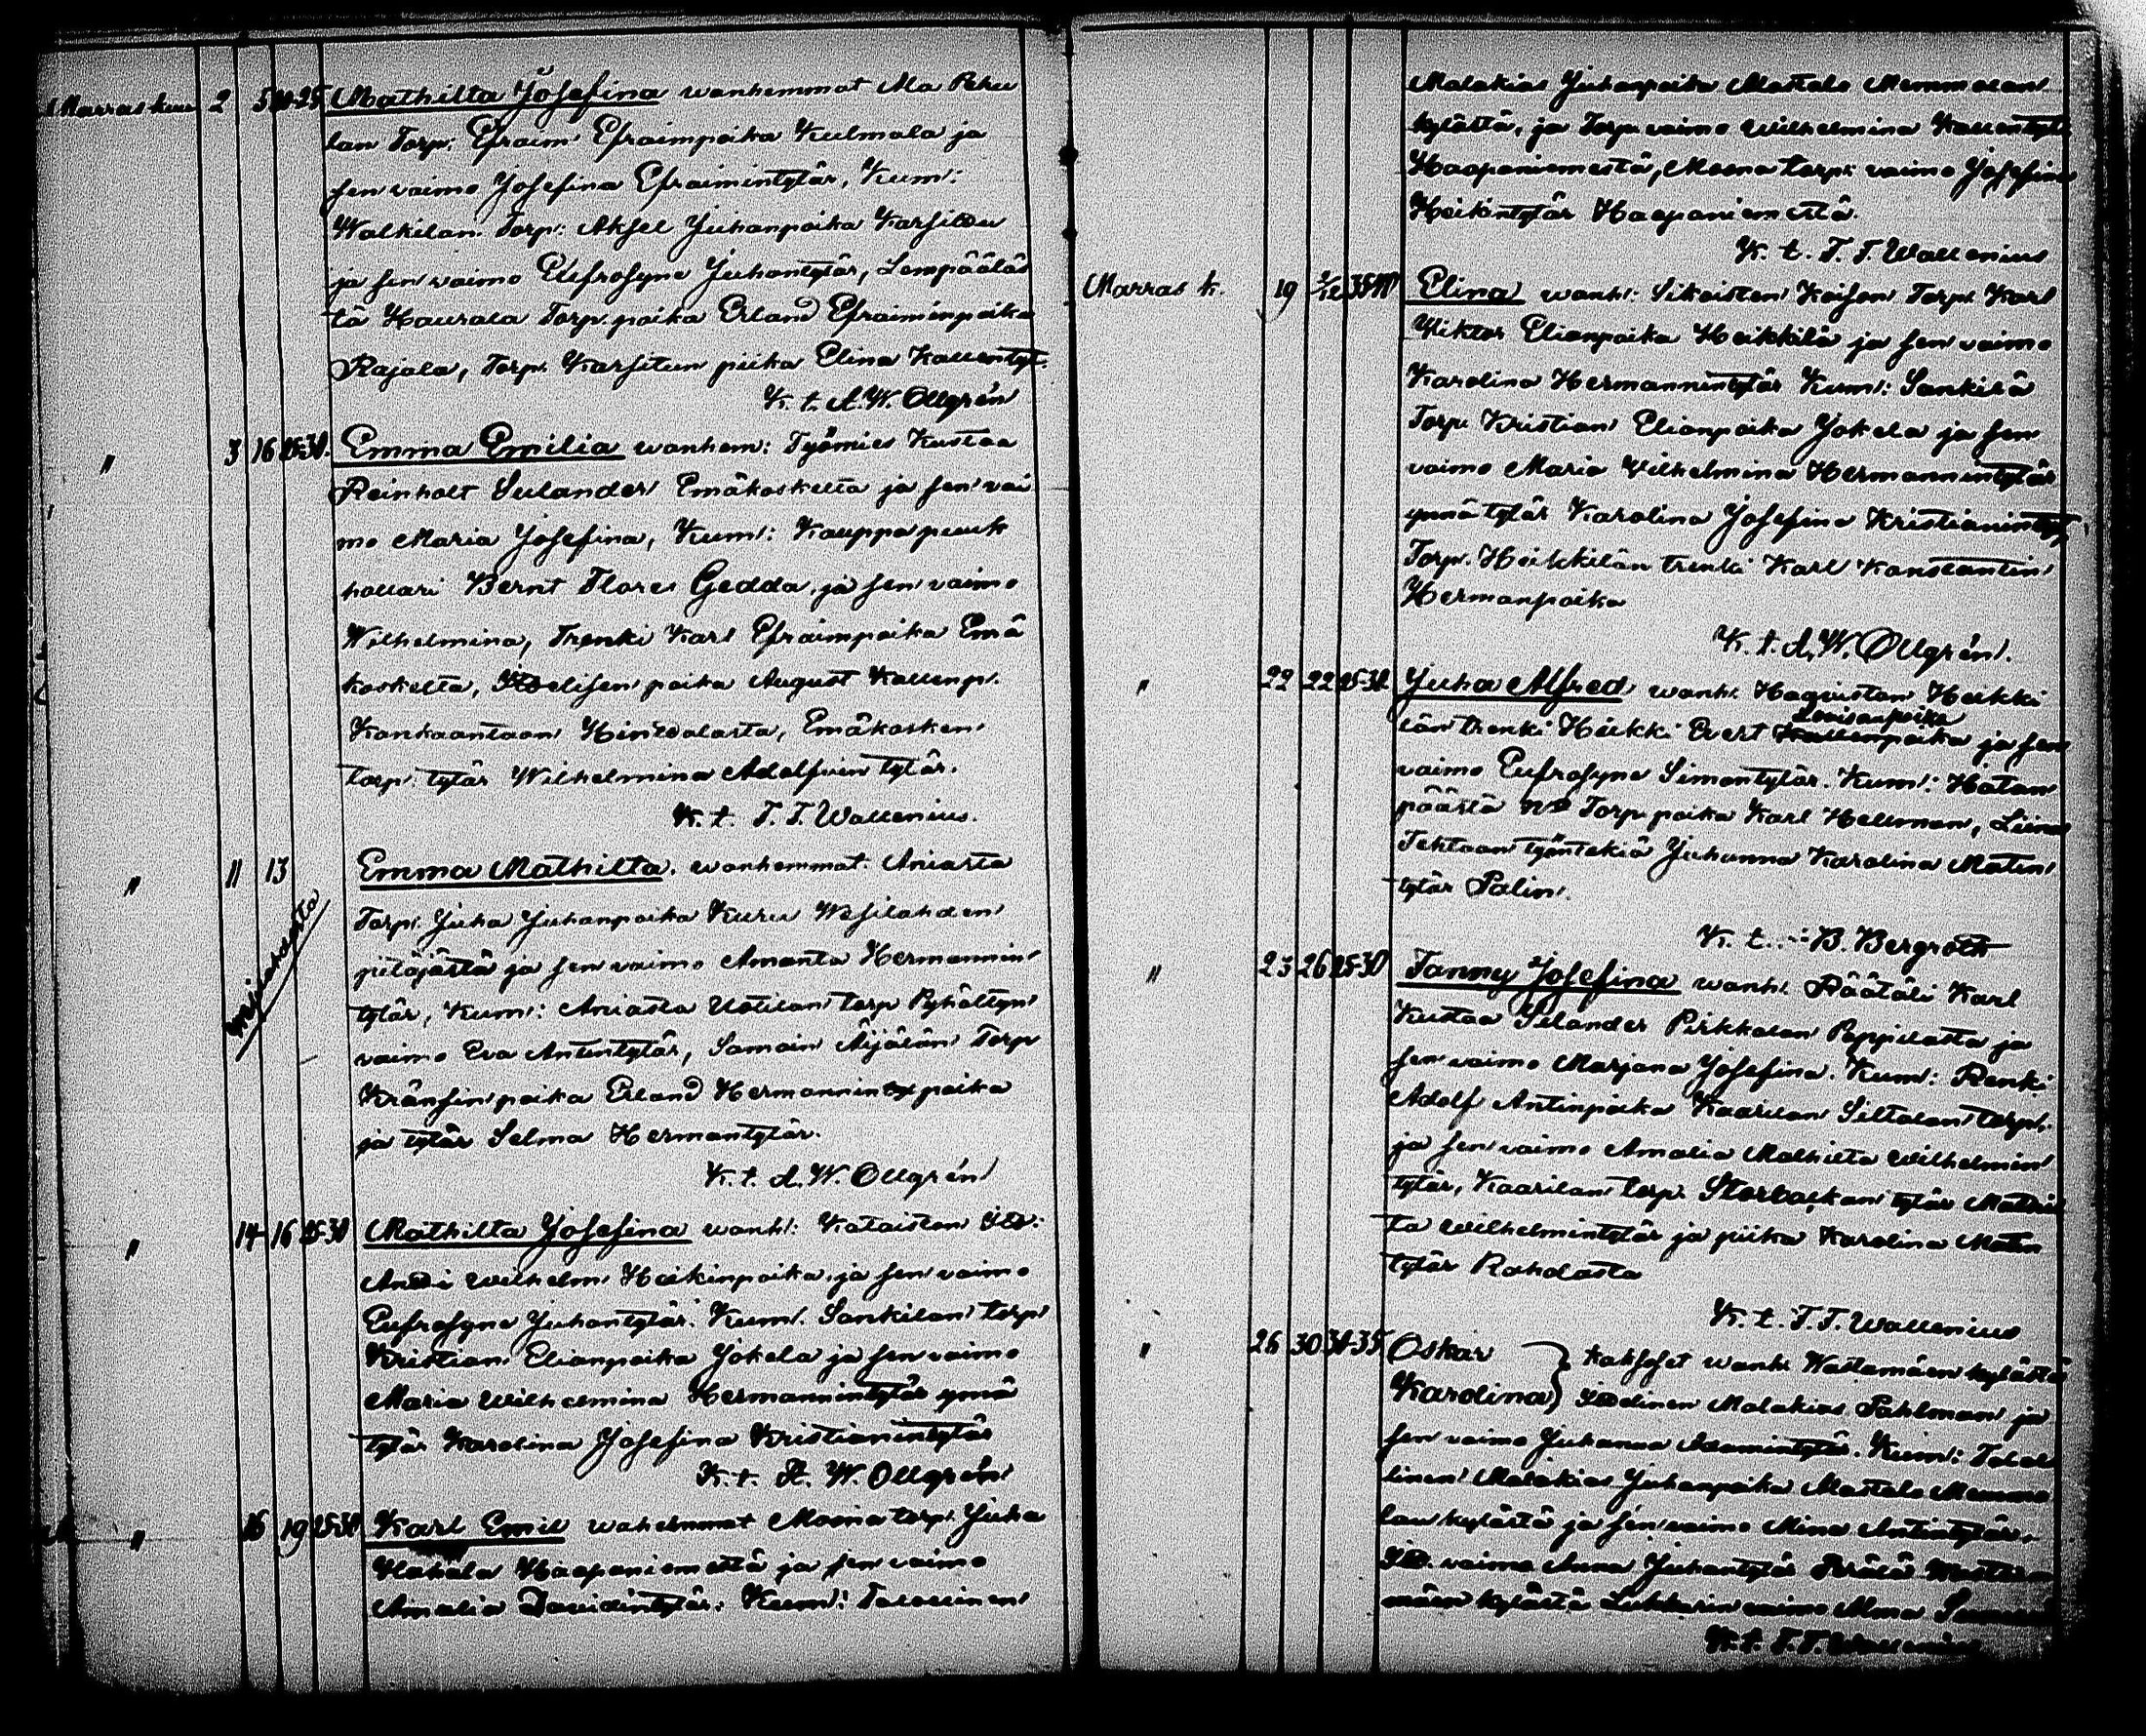 Marraskuu 2 5 20-25 Mathilta Josefina wanhemmat Ala Peku
lan Torp: Efraim Efraimpoika Kulmala ja
sen vaimo Josefina Efraimintytär, Kum:
Walkilan Torp: Aksel Juhanpoika Karsittu
ja sen vaimo Eufrosyne Juhantytär, Lempääläs
tä Haurala Torp. poika Erland Efraiminpoika
Rajala, Torp. Karsitun piika Elina Kallentyt.
K. t. A. W. Ollgrén
" 3 16 25-30. Emma Emilia wanhem: Työmies Kustaa
Reinholt Sulander Emäkoskelta ja sen vai
mo Maria Josefina, Kum: Kauppapuuk
hollari Bernt Flores Gedda, ja sen vaimo
Wilhelmina, Trenki Karl Efraimpoika Emä
koskelta, Itselisen poika August Kallenp.
Kankaantaan Hinsalasta, Emäkosken
torp. tytär Wilhelmina Adolfvin tytär.
K. t. T. T. Wallenius.
" 11 13 Emma Mathilta. wanhemmat. Aniasta
Torp. Juha Juhanpoika Kuru Wesilahden
pitäjästä ja sen vaimo Amanta Hermannin
tytär, Kum: Aniasta Uotilan torp Pyhältyn
vaimo Eva Antintytär, Samoin Äijälän Torp
Kränsin poika Erland Hermannin poika
ja tytär Selma Hermantytär.
K. t. A. W. Ollgrén
" 14 16 25-30 Mathilta Josefina wanh: Kataiston Its:
Antti Wilhelm Heikinpoika ja sen vaimo
Eufrosyne Juhantytär. Kum. Sankilan torp
Kristian Elianpoika Jokela ja sen vaimo
Maria Wilhelmina Hermannintytär ynnä
tytär Karolina Josefina Kristianintytär
K. t. A. W. Ollgrén
" 16 19 25-30 Karl Emil wahemmat Moina torp. Juha
Hakala Haapaniemestä ja sen vaimo
Amalia Davidintytär. Kum: Talollinen
Malakias Juhanpoika Mattala Memmalan
kylästä, ja Torp. vaimo Wilhelmina Kallentyt
Haapaniemestä, Moena torp: vaimo Josefina
Heikintytär Haapaniemestä.
K. t. T. T. Wallenius
Marras k. 19 2/12 35-40 Elina wanh: Sikaisten Koison Torp. Karl
Viktor Elianpoika Heikkilä ja sen vaimo
Karolina Hermannintytär Kum: Sankilä
Torp. Kristian Elianpoika Jokela ja sen
vaimo Maria Vilhelmina Hermannintytär
ynnä tytär Karolina Josefina Kristianintyt,
Torp. Heikkilän trenki Karl Konstantin
Hermanpoika
K. t. A. W. Ollgrén.
" 22 22 25-30 Juha Alfred wanh. Hagiustan Heikki
Lovisanpoika
län trenki Heikki Evert Kallenpoika ja sen
vaimo Eufrosyne Simontytär. Kum: Hatan
päästä Torp. poika Karl Hellman, Liina
Tehtaan työntekiä Juhanna Karolina Matin
tytär Palin.
K. t. B. Bergroth
" 23 26 25-30 Fanny Josefina wanh. Räätäli Karl
Kustaa Selander Pirkkalan Pappilasta ja
sen vaimo Marjana Josefina. Kum: Renki
Adolf Antinpoika Kaarilan Siltalan torp.
ja sen vaimo Amalia Mathilta Wilhelmin
tytär, Kaarilan torp. Storbackan tytär Mathil
ta Wilhelmintytär ja piika Karolina Matin
tytär Rahdasta
K. t. T. T. Wallenius
" 26 30 30-35 Oskar } kaksoset wanh. Wastamäen kylästä
Karolina } Itsellinen Malakias Pahlman ja
sen vaimo Juhanna Adamintytär. Kum: Talol
linen Malakias Juhanpoika Mattala Memma
lan kylästä ja sen vaimo Mina Antintytär,
Its. vaimo Anna Juhantytär Perälä Wasta
mäen kylästä Lukkarin vaimo Alma
K. t. T. T. Wallenius